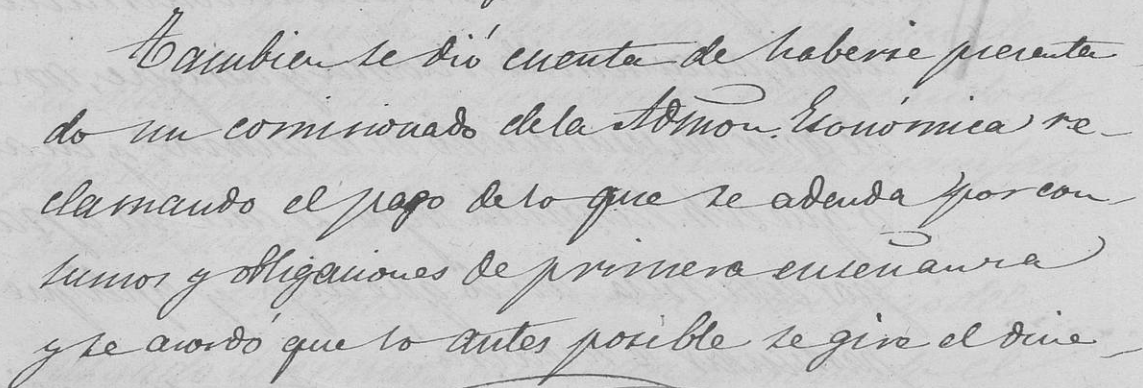 Tambien se dió cuenta de haberse presenta
do un comisionado de la Admon. Económica re-
clamando el pago de lo que se adeuda por con-
sumos y obligaciones de primera enseñanza
y se acordó que lo antes posible se gire el dine-